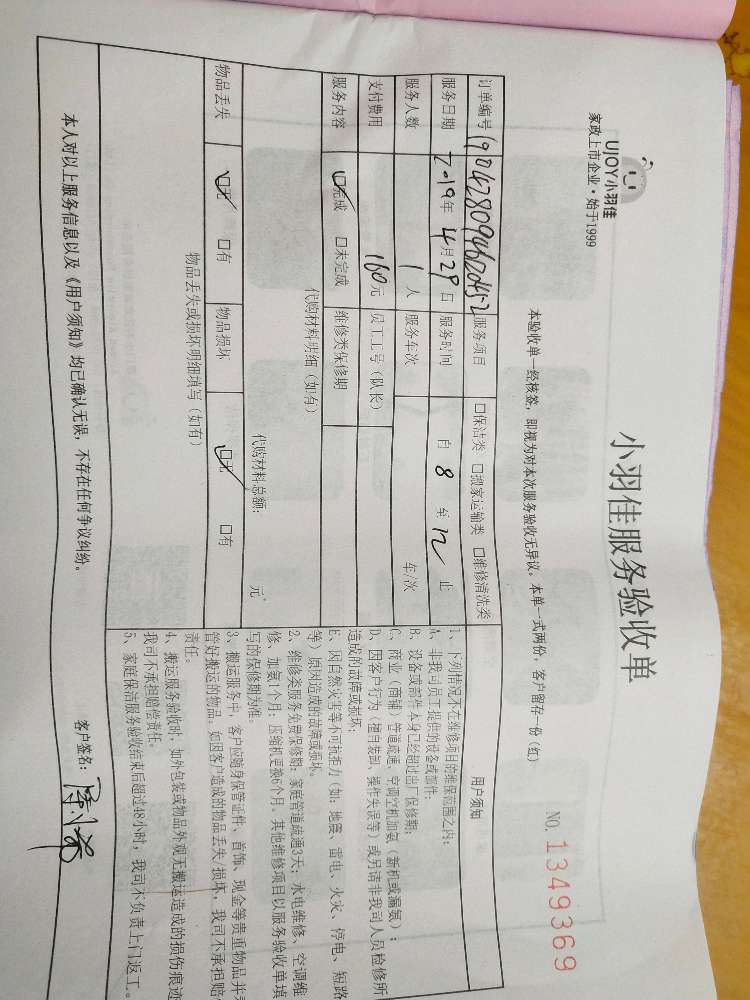 UJOY小羽佳
家政上市企业·始于1999
小羽佳服务验收单
NO. 1349369
本验收单一经核签，即视为对本次服务验收无异议。本单一式两份，客户留存一份（红）
订单编号 服务项目 □保洁类 □搬家运输类 □维修清洗类
服务日期 2019年 4月 29日 服务时间 自 8 至 12 止
服务人数 1 人 服务车次 车/次
支付费用 160元 员工工号（队长）
服务内容 ☑完成 □未完成 维修类保修期
代购材料明细（如有）
代购材料总额： 元
物品丢失 ☑无 □有 物品损坏 ☑无 □有
物品丢失或损坏明细填写（如有）
用户须知
1、下列情况不在维修项目的维保范围之内：
A、非我司员工提供的设备或部件；
B、设备或部件本身已经超过出厂保修期；
C、商业（商铺）管道疏通、空调空机加氨（新机或漏氨）；
D、因客户行为（擅自装卸、操作失误等）或另请非我司人员检修所
造成的故障或损坏；
E、因自然灾害等不可抗拒力（如：地震、雷电、火灾、停电、短路
等）原因造成的故障或损坏。
2、维修类服务免费保修期：家庭管道疏通3天；水电维修、空调维
修、加氨1个月；压缩机更换6个月。其他维修项目以服务验收单填
写的保修期为准。
3、搬运服务中，客户应随身保管证件、首饰、现金等贵重物品并
管好搬运的物品，如因客户造成的物品丢失/损坏，我司不承担赔
责任。
4、搬运服务验收时，如外包装或物品外观无搬运造成的损伤痕迹
我司不承担赔偿责任。
5、家庭保洁服务验收结束后超过48小时，我司不负责上门返工。
本人对以上服务信息以及《用户须知》均已确认无误，不存在任何争议纠纷。
客户签名：